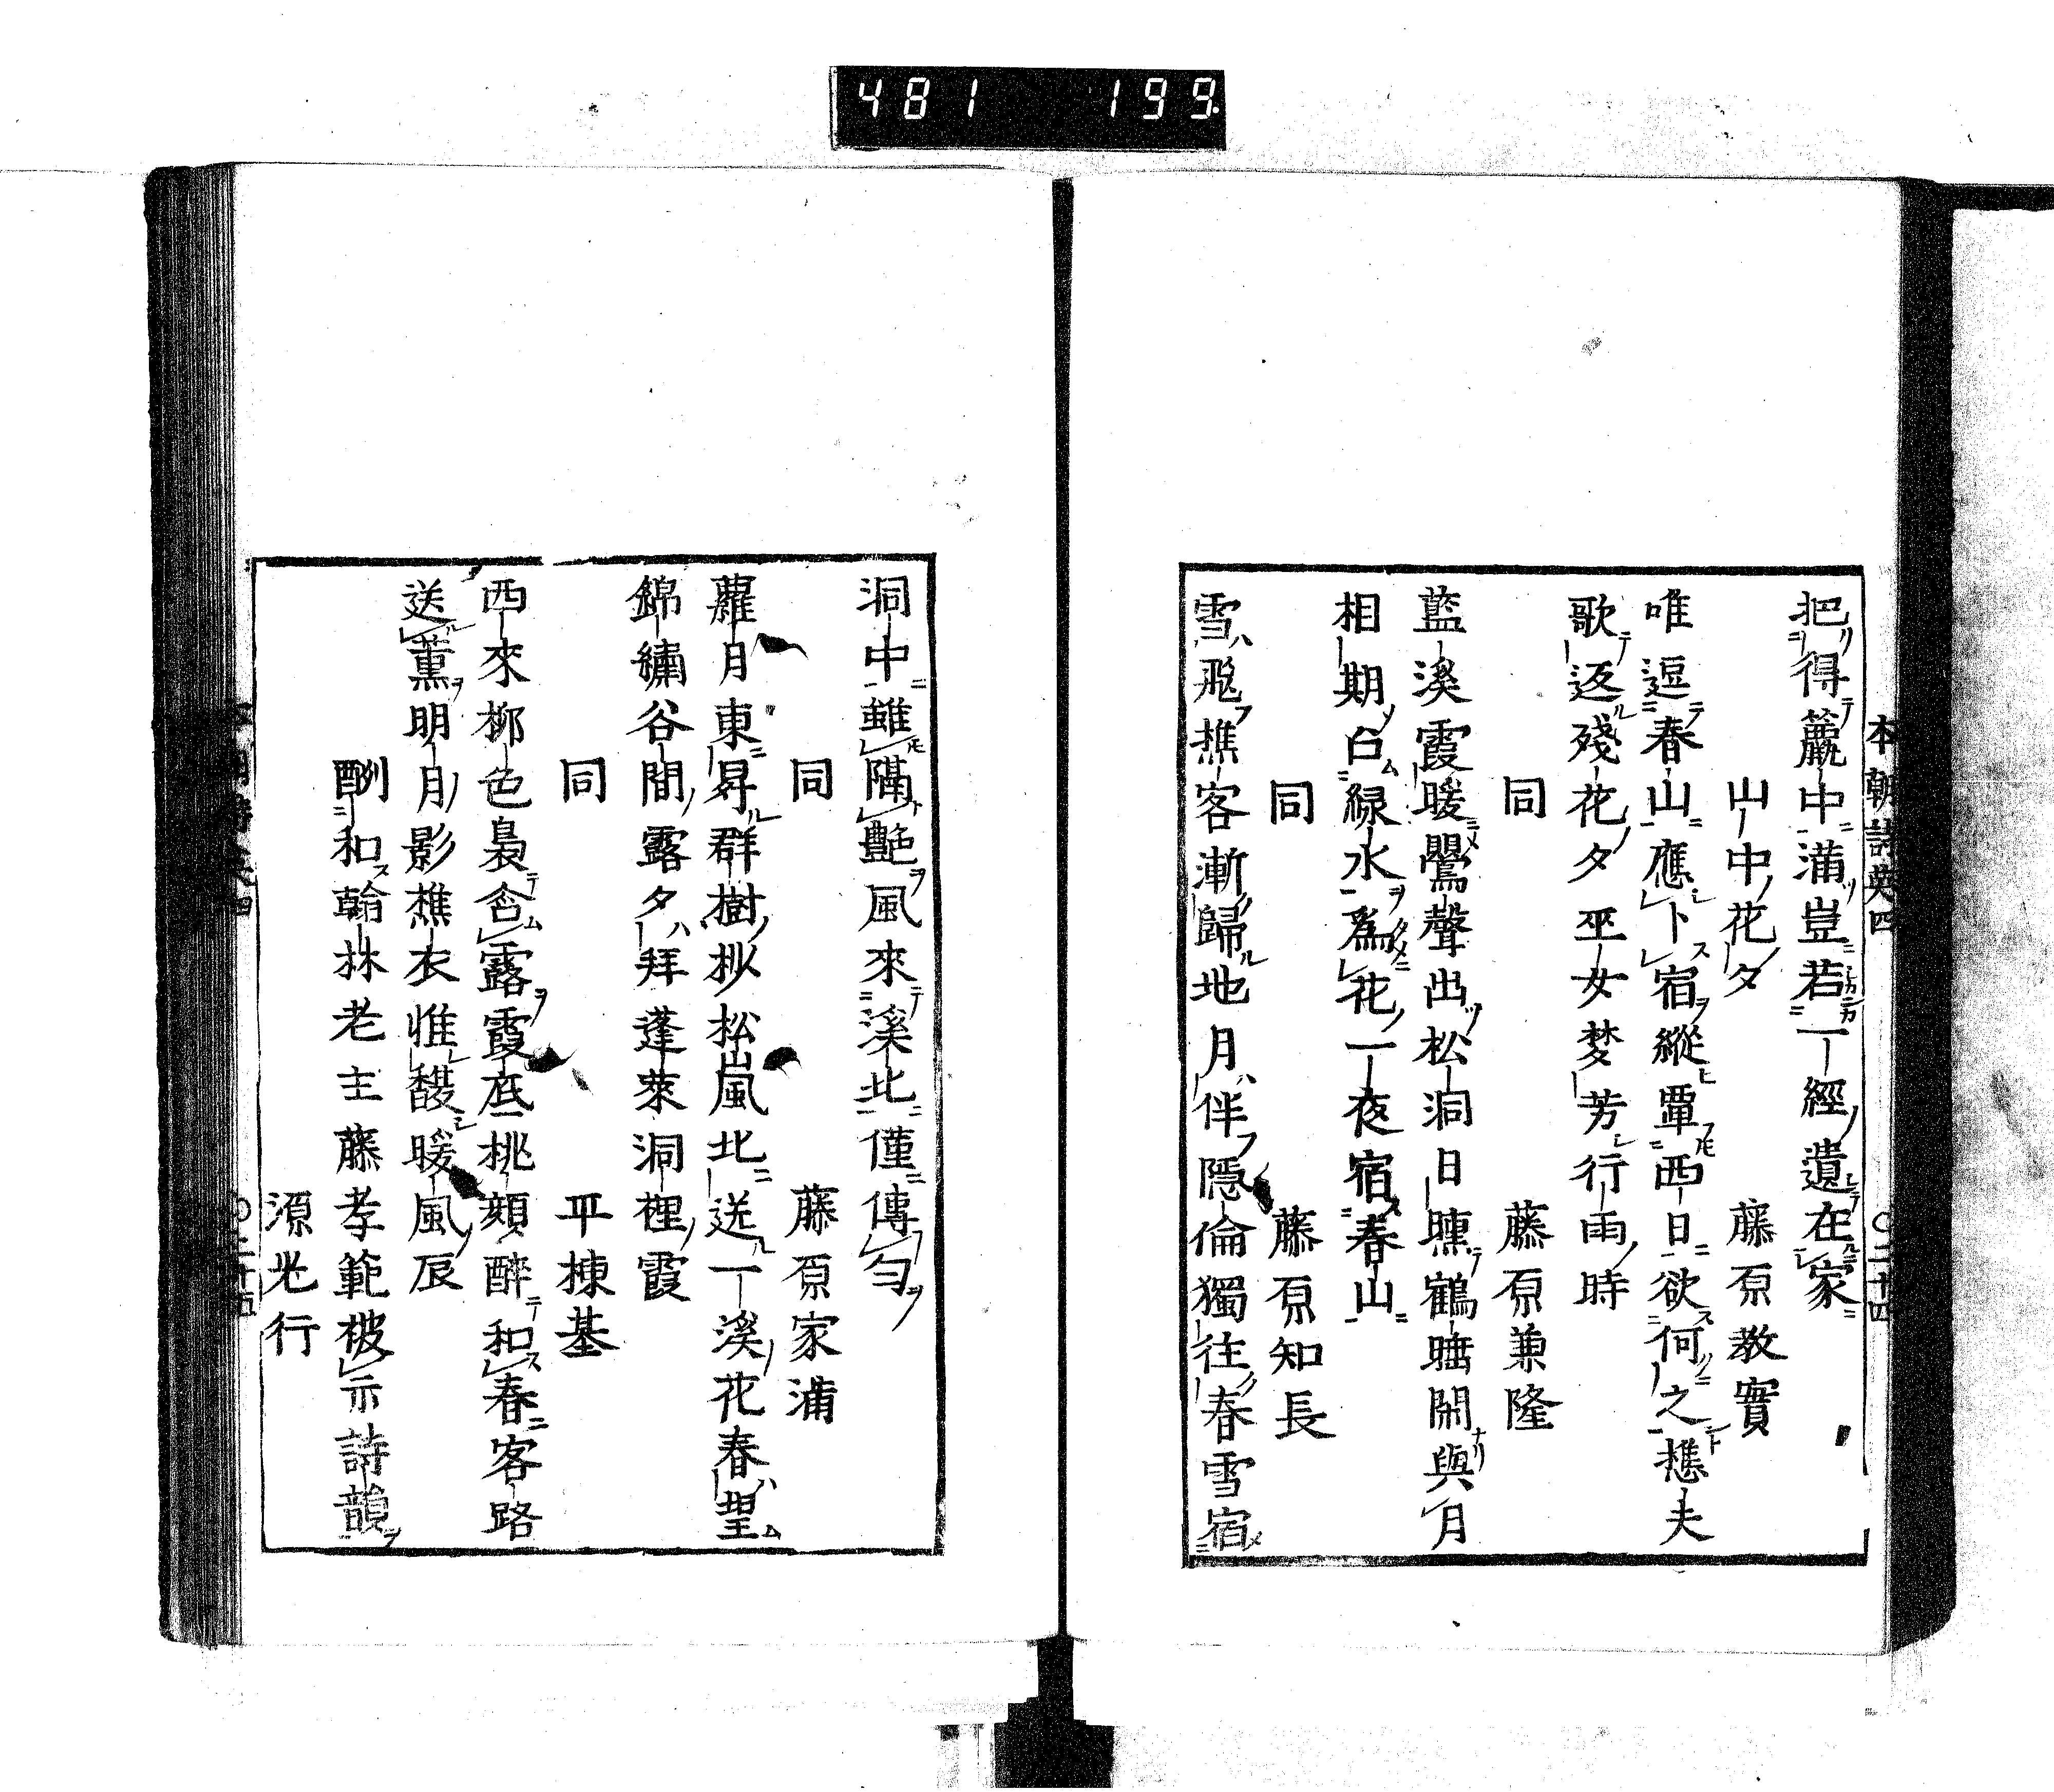 481 199.
本朝詩英四 〇二十四
把得籯中滿豈若一經遺在家
山中花夕 藤原教實
唯逗春山應卜宿縱覃西日欲何之樵夫
歌返殘花夕巫女夢芳行雨時
同 藤原兼隆
藍溪霞暖鸎聲出松洞日曛鶴睡閑與月
相期白綠水爲花一夜宿春山
同 藤原知長
雪飛樵客漸歸地月伴隱倫獨往春雪宿
洞中雖隔艷風來溪北僅傳匂
同 藤原家滿
蘿月東昇群樹杪松嵐北送一溪花春望
錦繡谷間露夕拜蓬萊洞裡霞
同 平棟基
西來柳色裊含露霞底桃顏醉和春客路
送薰明月影樵衣惟馥暖風辰
酬和翰林老主藤孝範被示詩韻
源光行
〇二十五